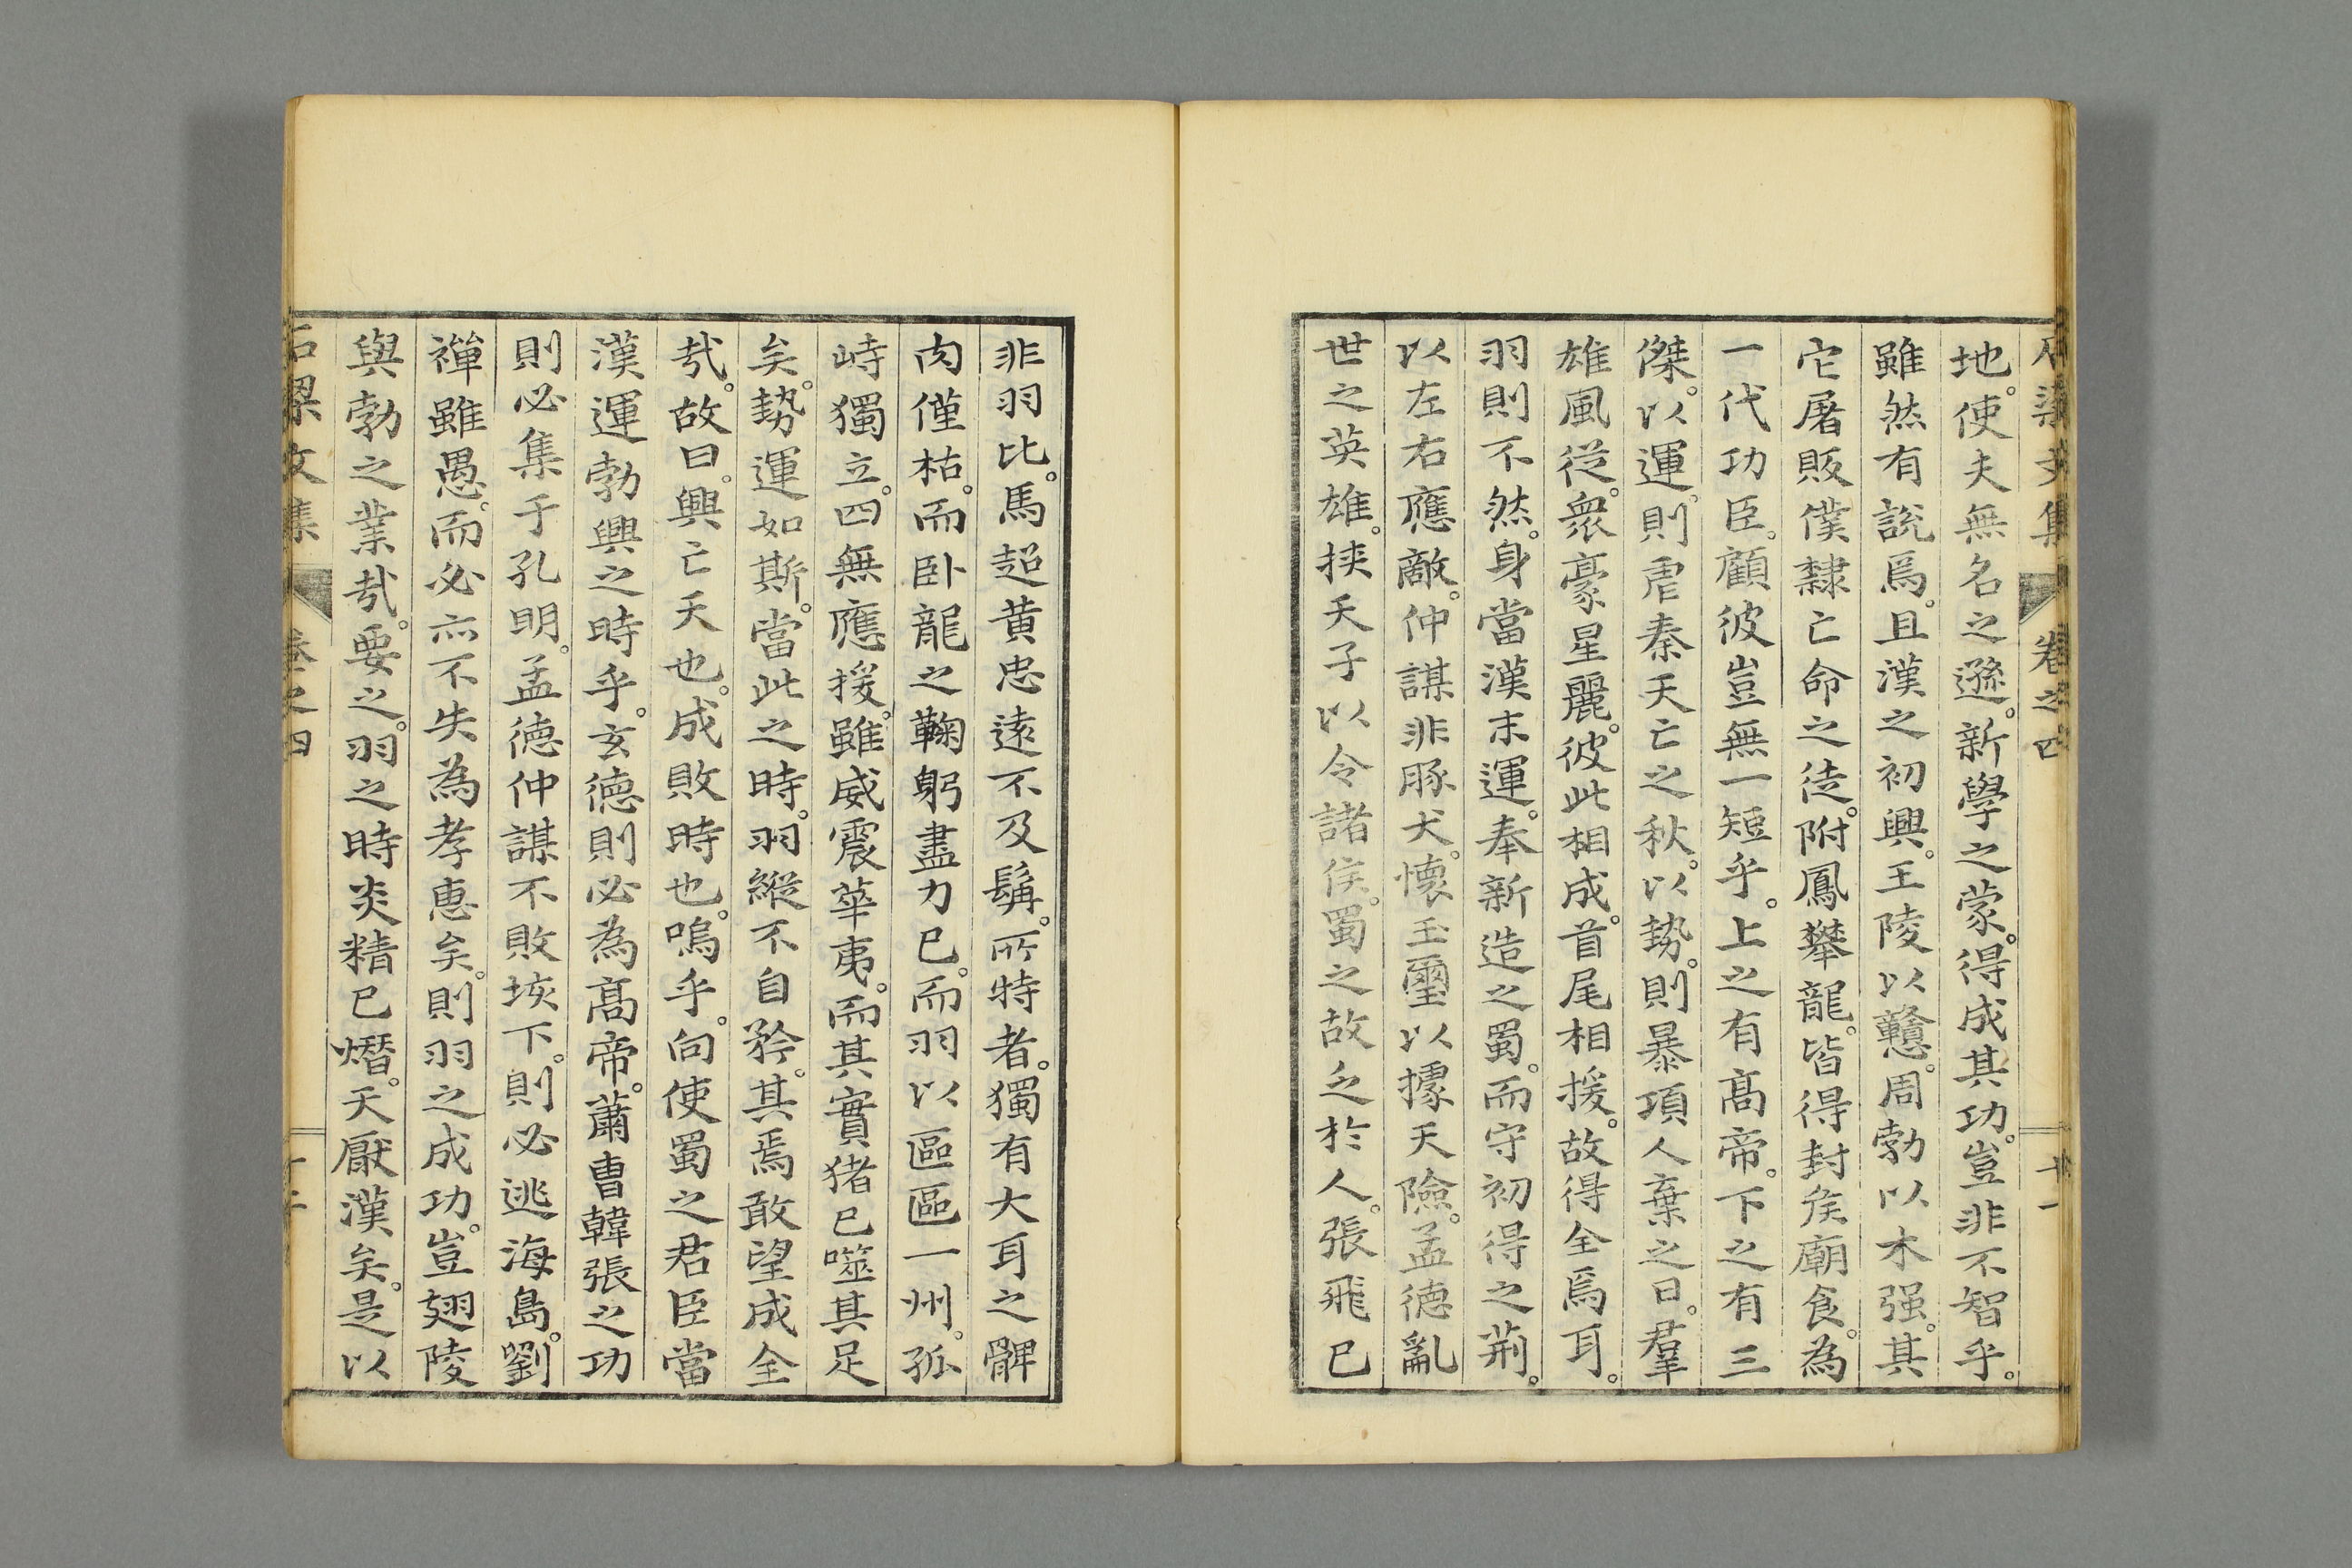 地。使夫無名之遜。新學之蒙。得成其功。豈非不智乎。
雖然有說焉。且漢之初興。王陵以戇。周勃以木强。其
它屠販僕隸亡命之徒。附鳳攀龍。皆得封矦廟食。為
一代功臣。顧彼豈無一短乎。上之有高帝。下之有三
傑。以運。則虐秦天亡之秋。以勢。則暴項人棄之日。羣
雄風從。衆豪星麗。彼此相成。首尾相援。故得全焉耳。
羽則不然。身當漢末運。奉新造之蜀。而守初得之荊。
以左右應敵。仲謀非豚犬。懷玉璽以據天險。孟德亂
世之英雄。挾天子以令諸侯。蜀之故乏於人。張飛已
非羽比。馬超黃忠遠不及髯。所特者。獨有大耳之髀
肉僅枯。而卧龍之鞠躬盡力已。而羽以區區一州。孤
峙獨立。四無應援。雖威震華夷。而其實猪已噬其足
矣。勢運如斯。當此之時。羽縱不自矜。其焉敢望成全
哉。故曰。興亡天也。成敗時也。嗚乎。向使蜀之君臣當
漢運勃興之時乎。玄德則必為高帝。蕭曹韓張之功
則必集于孔明。孟德仲謀不敗垓下。則必逃海島。劉
禪雖愚。而必亦不失為孝惠矣。則羽之成功。豈翅陵
與勃之業哉。要之。羽之時炎精已熸。天厭漢矣。是以
卷之四
十一